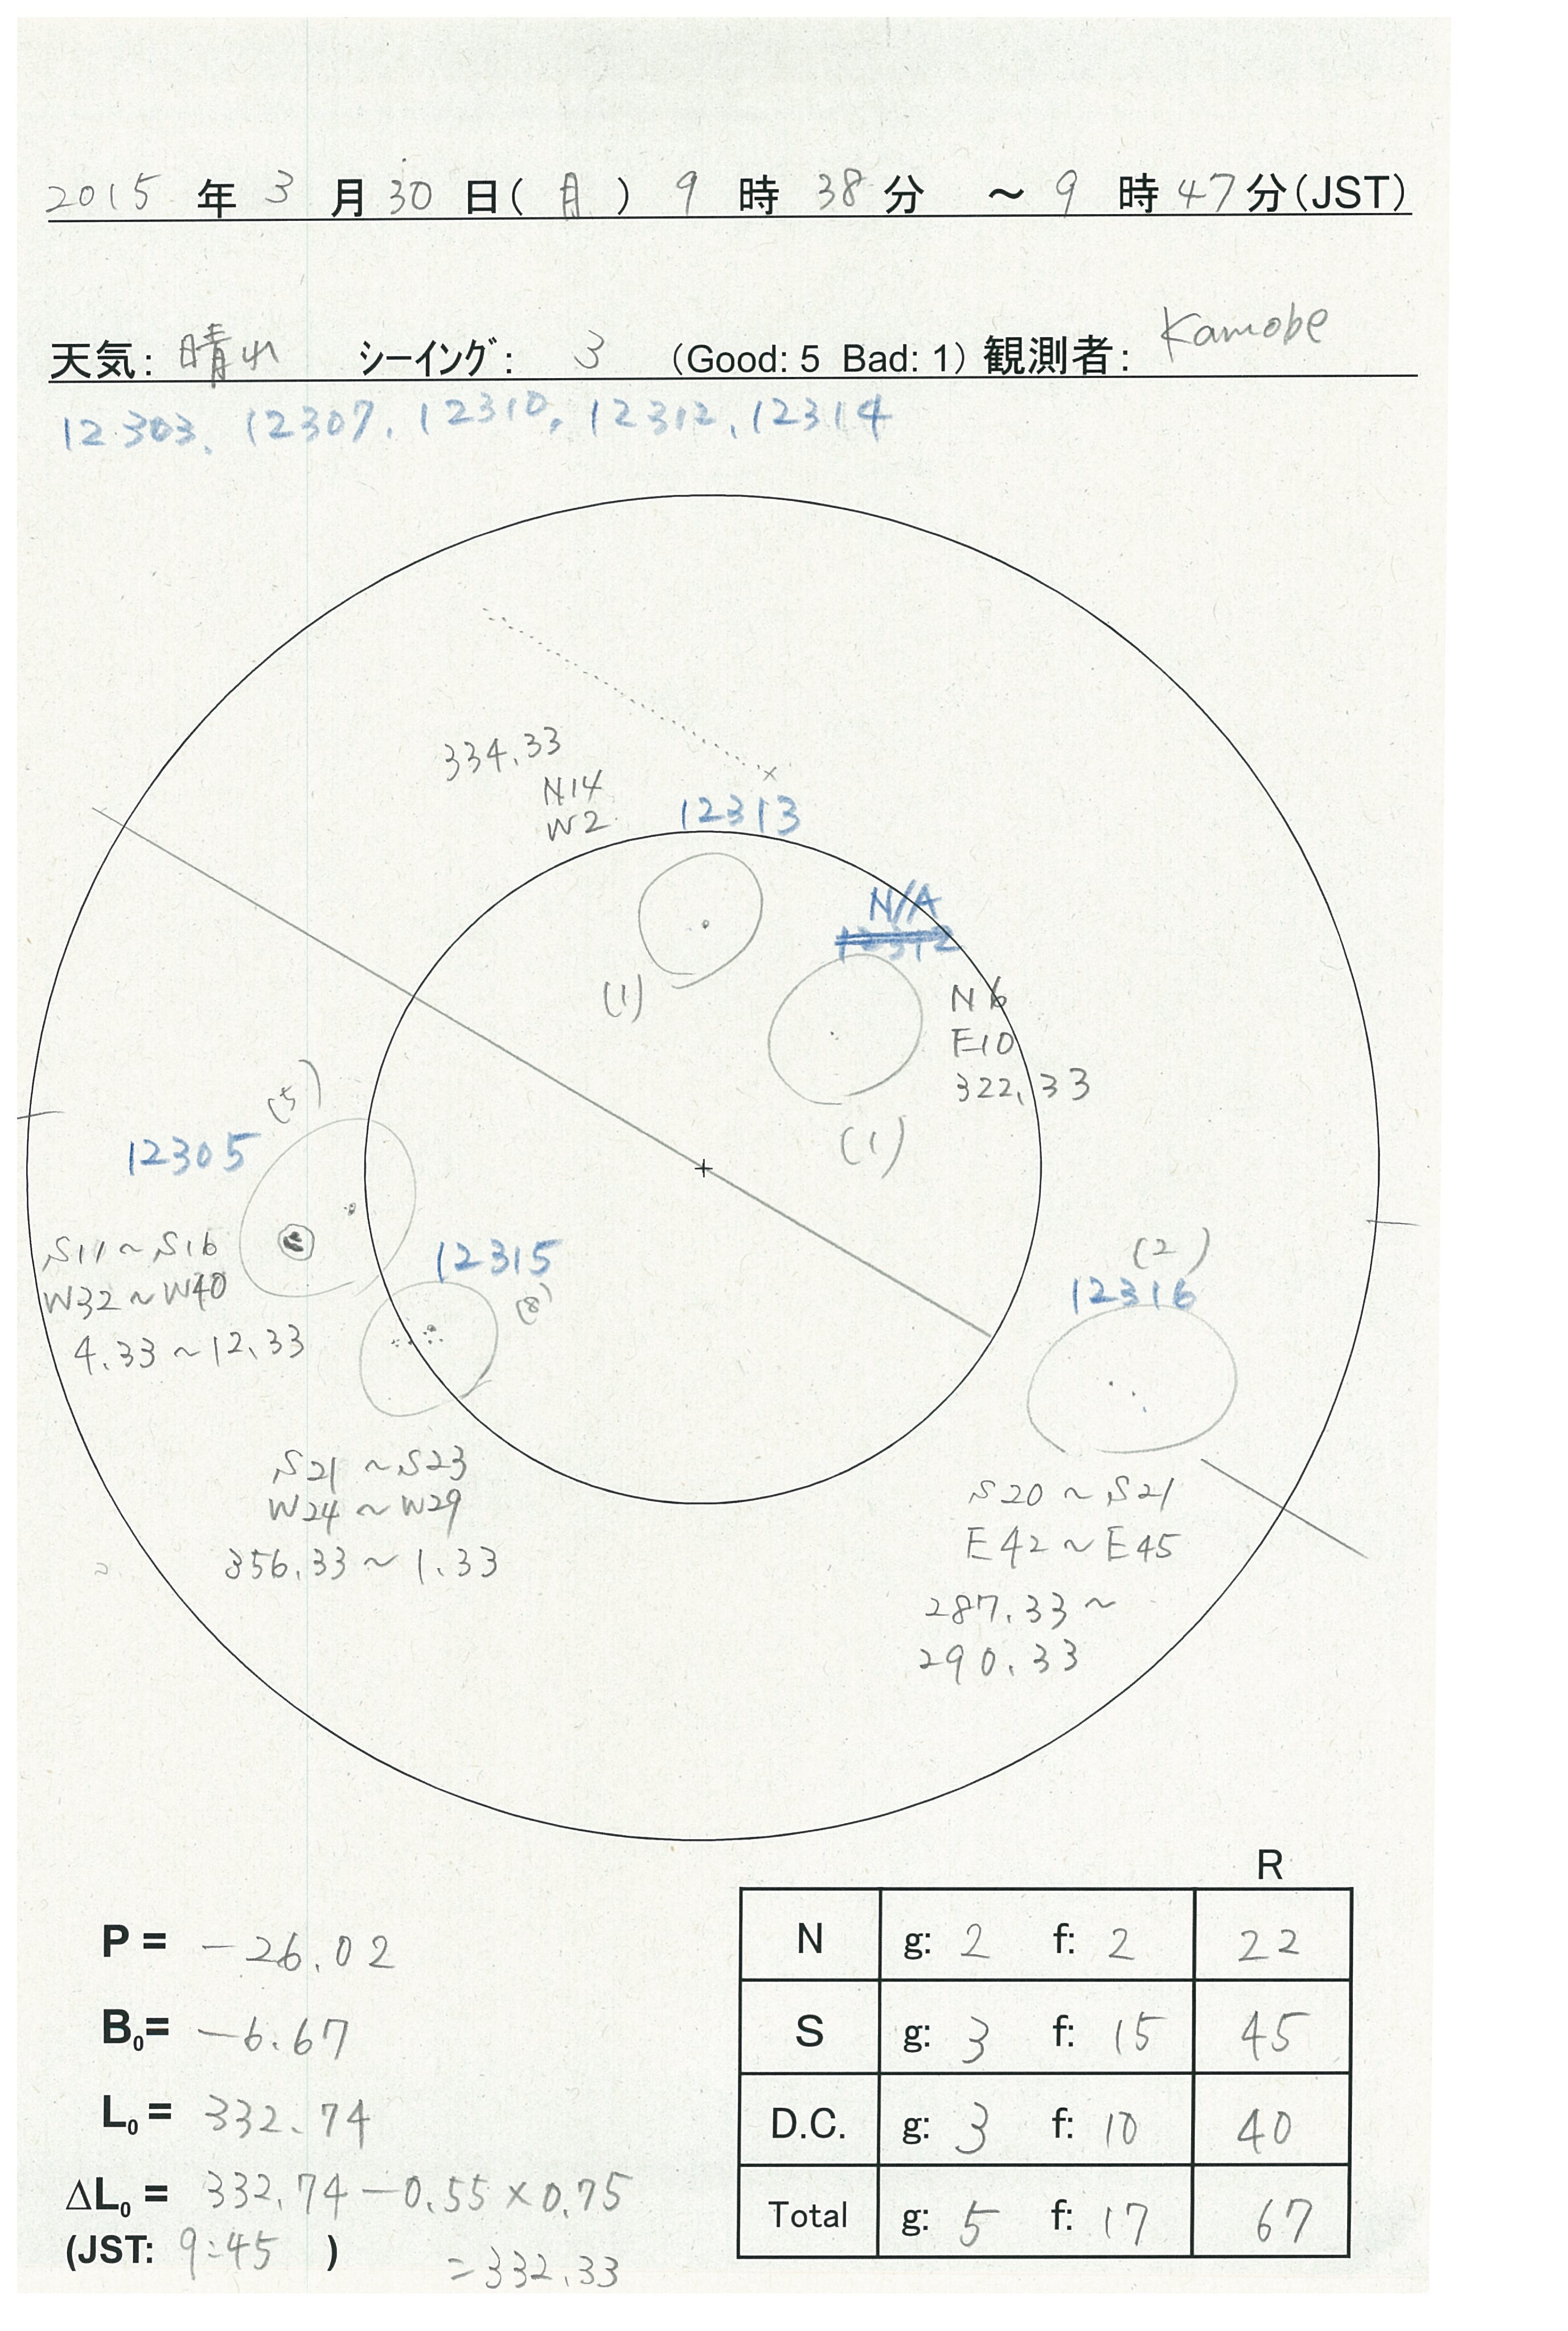 2015 年 3 月 30 日(月) 9 時 38 分 ～ 9 時 47 分(JST)
天気: 晴れ シーイング: 3 (Good: 5 Bad: 1) 観測者: Kamobe
12303, 12307, 12310, 12312, 12314
334.33
N14
W2
12313
(1)
N/A
12312
N6
E10
322.33
(1)
(5)
12305
S11~S16
W32~W40
4.33~12.33
12315
(8)
S21~S23
W24~W29
356.33~1.33
(2)
12316
S20~S21
E42~E45
287.33~
290.33
P= -26.02
B0= -6.67
L0= 332.74
ΔL0= 332.74-0.55×0.75
(JST: 9:45) =332.33
R
N g: 2 f: 2 22
S g: 3 f: 15 45
D.C. g: 3 f: 10 40
Total g: 5 f: 17 67